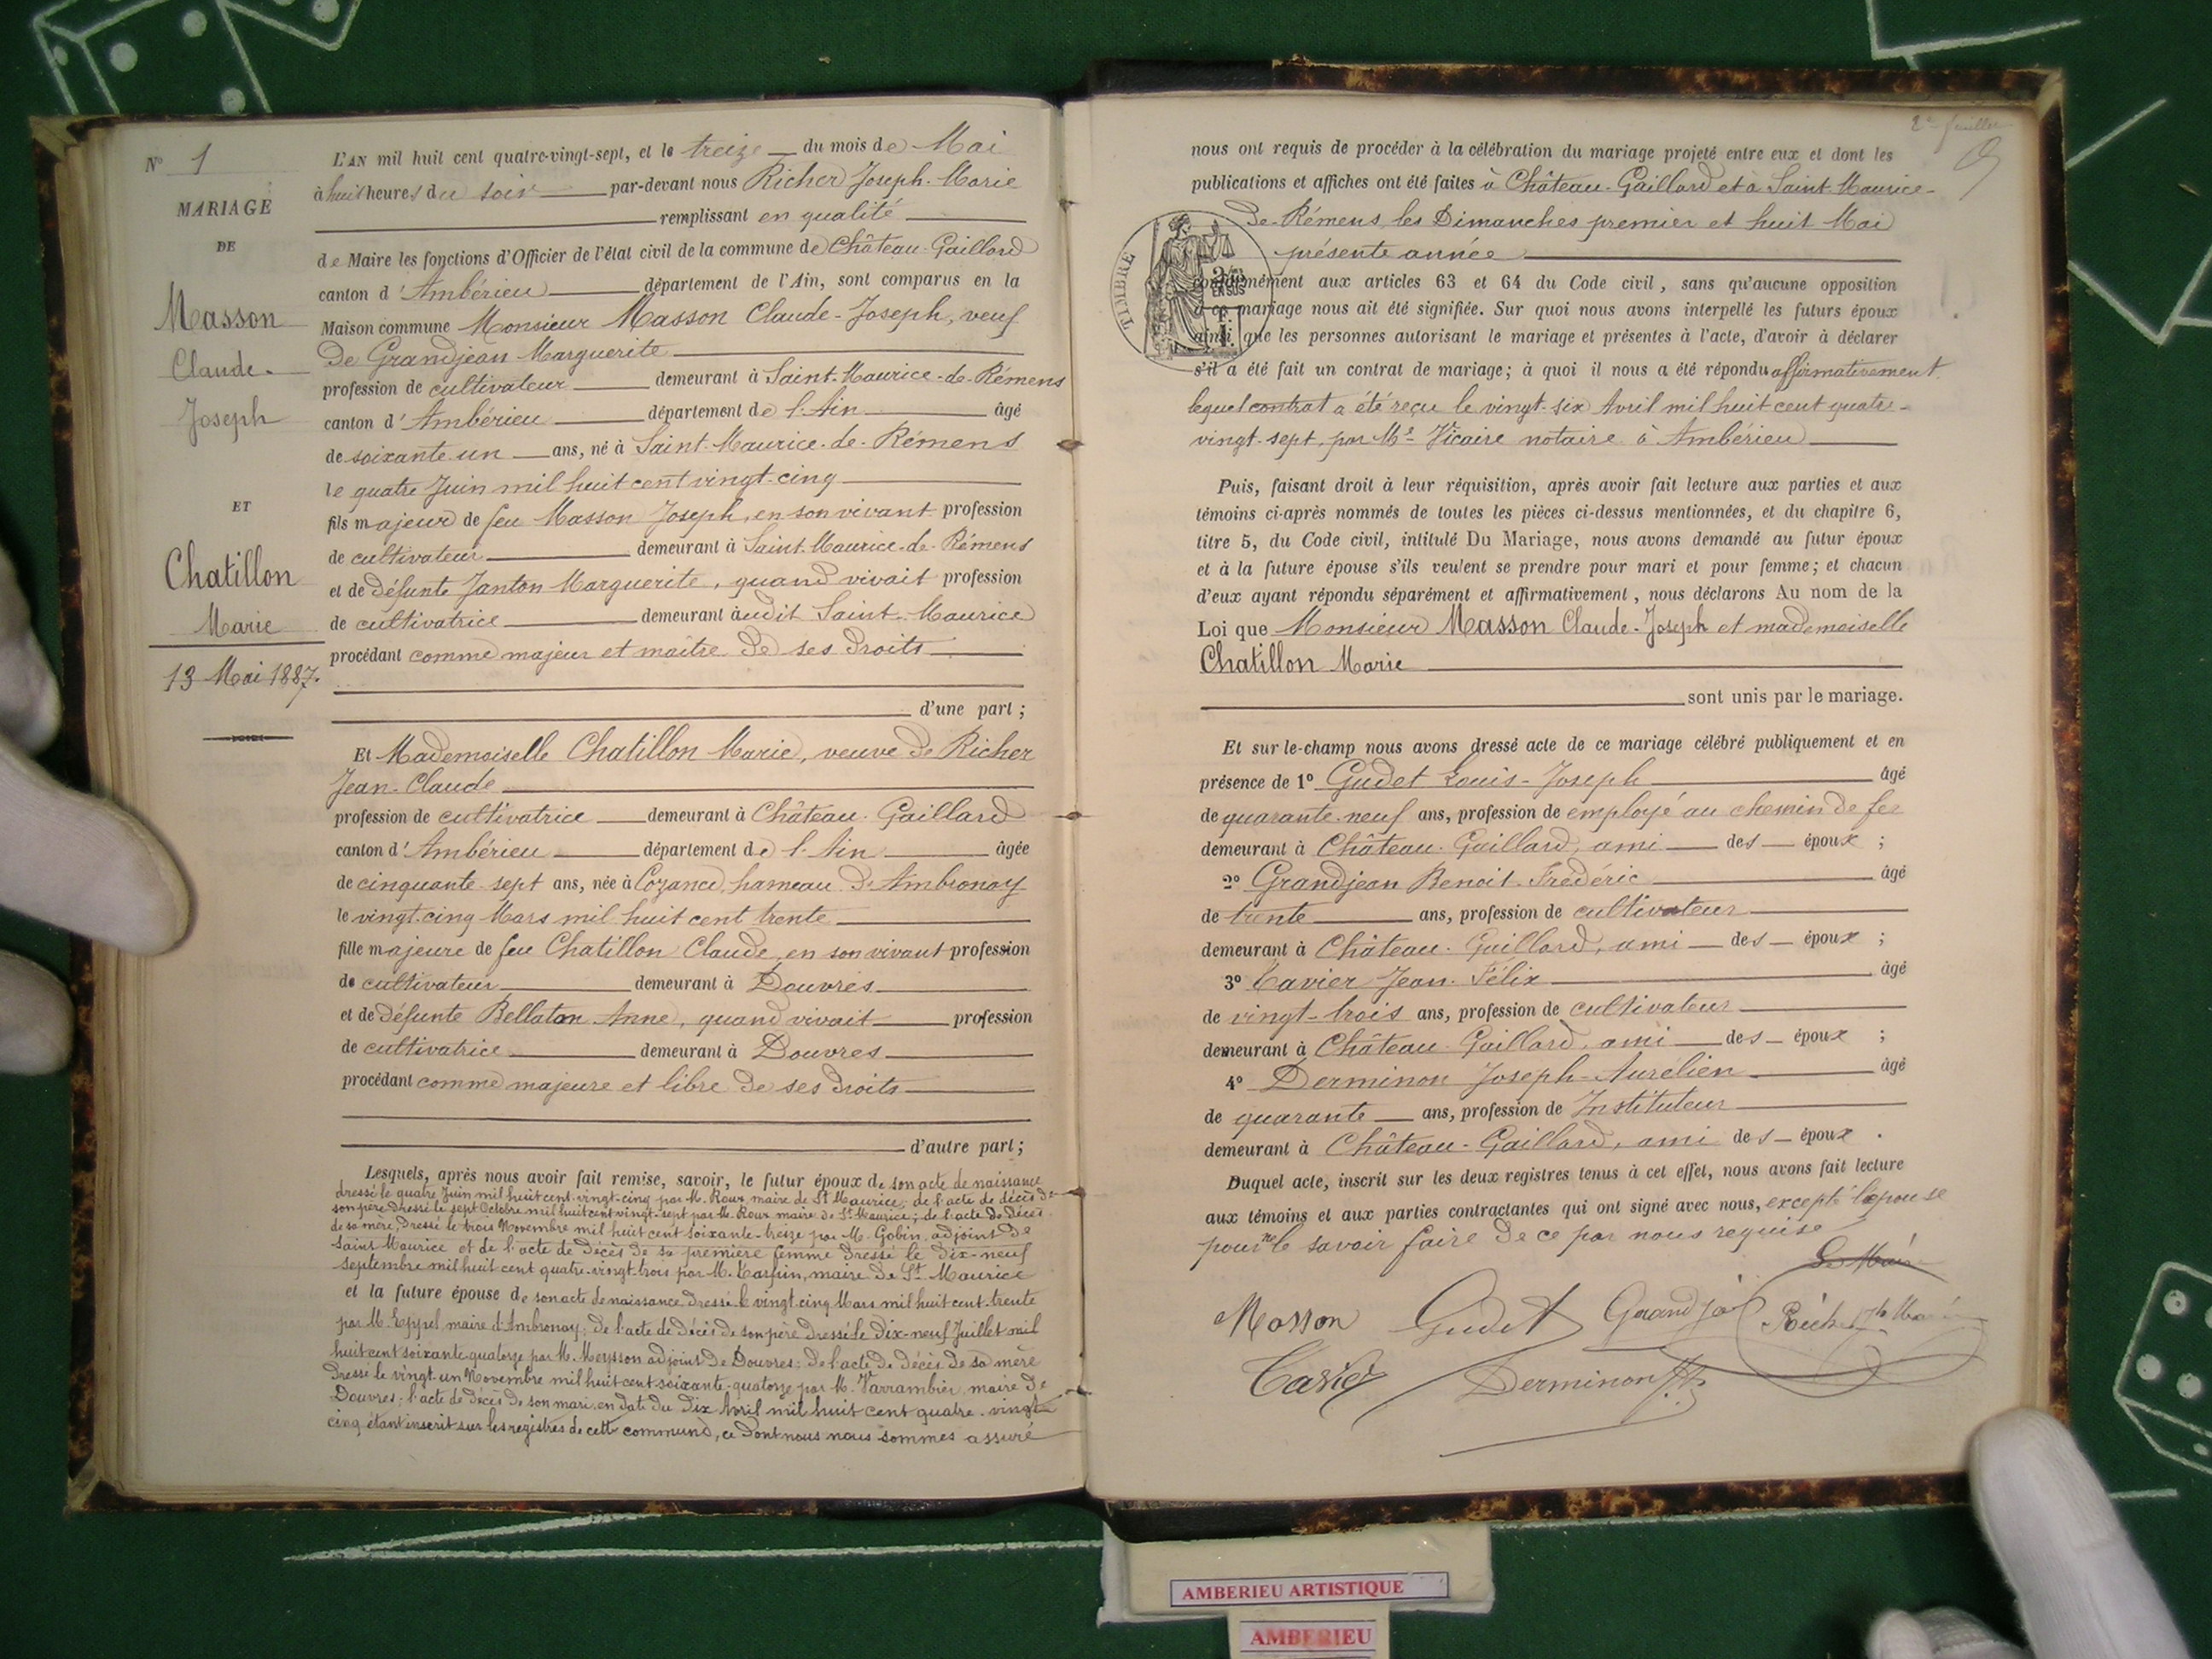 N° 1
MARIAGE
DE
Masson
Claude-
Joseph
ET
Chatillon
Marie
13 Mai 1887.
L'AN mil huit cent quatre-vingt-sept, et le treize du mois de Mai
à huit heures du soir par-devant nous Richer Joseph-Marie
remplissant en qualité
de Maire les fonctions d'Officier de l'état civil de la commune de Château-Gaillard
canton d'Ambérieu département de l'Ain, sont comparus en la
Maison commune Monsieur Masson Claude-Joseph, veuf
de Grandjean Marguerite
profession de cultivateur demeurant à Saint-Maurice-de-Rémens
canton d'Ambérieu département de l'Ain âgé
de soixante-un ans, né à Saint-Maurice-de-Rémens
le quatre Juin mil huit cent vingt-cinq
fils majeur de feu Masson Joseph, en son vivant profession
de cultivateur demeurant à Saint-Maurice-de-Rémens
et de défunte Janton Marguerite, quand vivait profession
de cultivatrice demeurant audit Saint-Maurice
procédant comme majeur et maître de ses droits
d'une part ;
Et Mademoiselle Chatillon Marie, veuve de Richer
Jean-Claude
profession de cultivatrice demeurant à Château-Gaillard
canton d'Ambérieu département de l'Ain âgée
de cinquante-sept ans, née à Cozance, hameau d'Ambronay
le vingt-cinq Mars mil huit cent trente
fille majeure de feu Chatillon Claude, en son vivant profession
de cultivateur demeurant à Douvres
et de défunte Bellaton Anne, quand vivait profession
de cultivatrice demeurant à Douvres
procédant comme majeure et libre de ses droits
d'autre part ;
Lesquels, après nous avoir fait remise, savoir, le futur époux de son acte de naissance
dressé le quatre Juin mil huit cent vingt-cinq par M. Roux maire de St Maurice; de l'acte de décès de
son père dressé le sept Octobre mil huit cent vingt-sept par M. Roux maire de St Maurice; de l'acte de décès
de sa mère, dressé le trois Novembre mil huit cent soixante-treize par M. Gobin, adjoint de
Saint Maurice et de l'acte de décès de sa première femme dressé le dix-neuf
septembre mil huit cent quatre-vingt-trois par M. maire de St Maurice
et la future épouse de son acte de naissance dressé le vingt cinq Mars mil huit cent trente
par M. Eppel maire d'Ambronay; de l'acte de décès de son père dressé le dix-neuf Juillet mil
huit cent soixante quatorze par M. Meysson adjoint de Douvres; de l'acte de décès de sa mère
dressé le vingt-un Novembre mil huit cent soixante-quatorze par M. Varrambier maire de
Douvres; l'acte de décès de son mari en date du dix Avril mil huit cent quatre-vingt-
cinq étant inscrit sur les registres de cette commune, ce dont nous nous sommes assuré
2e feuillet
nous ont requis de procéder à la célébration du mariage projeté entre eux et dont les
publications et affiches ont été faites à Château-Gaillard et à Saint-Maurice-
de-Rémens, les Dimanches premier et huit Mai
présente année
TIMBRE
2/10
EN SUS
conformément aux articles 63 et 64 du Code civil, sans qu'aucune opposition
à ce mariage nous ait été signifiée. Sur quoi nous avons interpellé les futurs époux
ainsi que les personnes autorisant le mariage et présentes à l'acte, d'avoir à déclarer
s'il a été fait un contrat de mariage; à quoi il nous a été répondu affirmativement
lequel contrat a été reçu le vingt-six Avril mil huit cent quatre-
vingt-sept, par Me Vicaire notaire à Ambérieu
Puis, faisant droit à leur réquisition, après avoir fait lecture aux parties et aux
témoins ci-après nommés de toutes les pièces ci-dessus mentionnées, et du chapitre 6,
titre 5, du Code civil, intitulé Du Mariage, nous avons demandé au futur époux
et à la future épouse s'ils veulent se prendre pour mari et pour femme; et chacun
d'eux ayant répondu séparément et affirmativement, nous déclarons Au nom de la
Loi que Monsieur Masson Claude-Joseph et mademoiselle
Chatillon Marie
sont unis par le mariage.
Et sur-le-champ nous avons dressé acte de ce mariage célébré publiquement et en
présence de 1° Gudet Louis-Joseph âgé
de quarante-neuf ans, profession de employé au chemin de fer
demeurant à Château-Gaillard, ami des époux ;
2° Grandjean Benoit-Frédéric âgé
de trente ans, profession de cultivateur
demeurant à Château-Gaillard, ami des époux ;
3° Tavier Jean-Félix âgé
de vingt-trois ans, profession de cultivateur
demeurant à Château-Gaillard, ami des époux ;
4° Derminon Joseph-Aurélien âgé
de quarante ans, profession de Instituteur
demeurant à Château-Gaillard, ami des époux .
Duquel acte, inscrit sur les deux registres tenus à cet effet, nous avons fait lecture
aux témoins et aux parties contractantes qui ont signé avec nous, excepté l'épouse
pour ne le savoir faire de ce par nous requise
Le Maire
Masson Gudet Grandjean
Tavier Derminon
AMBERIEU ARTISTIQUE
AMBERIEU